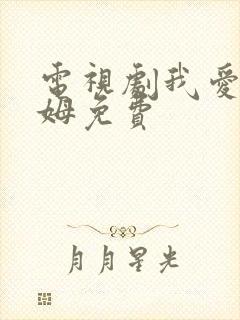 電視劇我愛
姆免費
月月星光